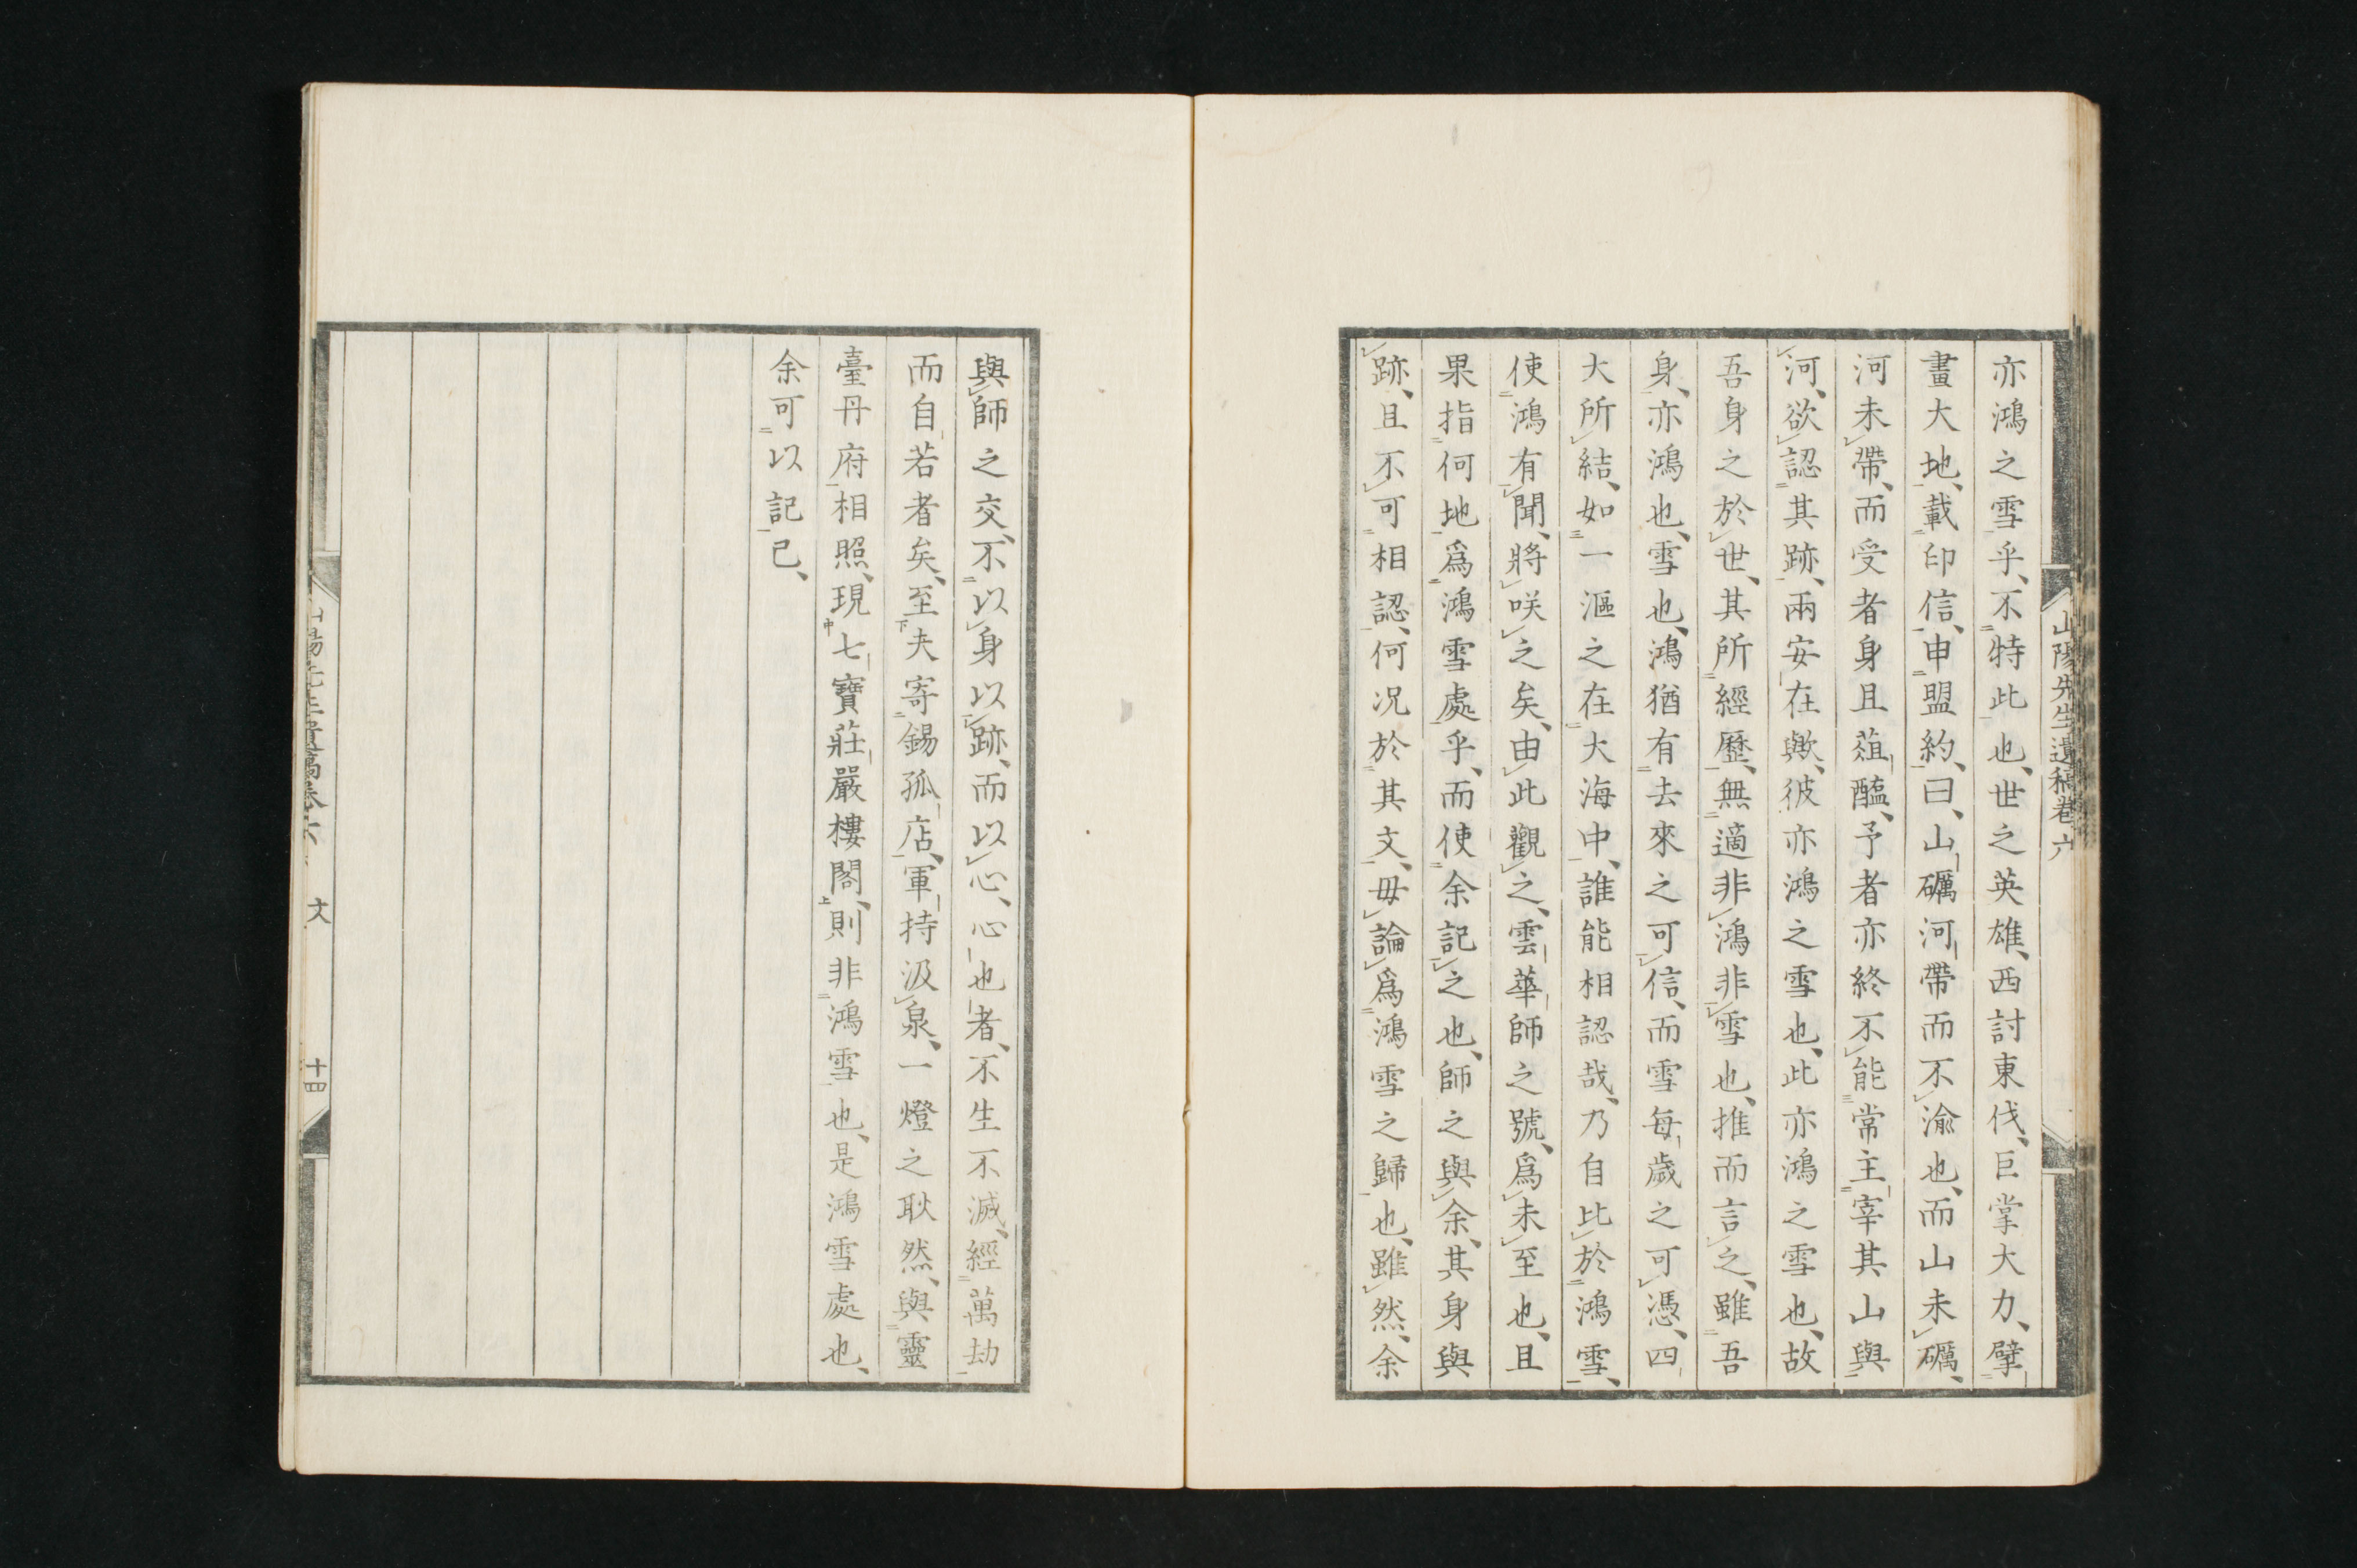 山陽先生遺稿卷六
亦鴻之雪乎、不特此也、世之英雄、西討東伐、巨掌大力、擘
畫大地、載印信、申盟約、曰、山礪河帶而不渝也、而山未礪、
河未帶、而受者身且葅醢、予者亦終不能常主宰其山與
河、欲認其跡、兩安在歟、彼亦鴻之雪也、此亦鴻之雪也、故
吾身之於世、其所經歷、無適非鴻非雪也、推而言之、雖吾
身、亦鴻也、雪也、鴻猶有去來之可信、而雪每歲之可憑、四
大所結、如一漚之在大海中、誰能相認哉、乃自比於鴻雪、
使鴻有聞、將咲之矣、由此觀之、雲華師之號、爲未至也、且
果指何地爲鴻雪處乎、而使余記之也、師之與余、其身與
跡、且不可相認、何况於其文、毋論爲鴻雪之歸也、雖然、余
與師之交、不以身以跡、而以心、心也者、不生不滅、經萬劫
而自若者矣、至夫寄錫孤店、軍持汲泉、一燈之耿然、與靈
臺丹府相照、現七寶莊嚴樓閣、則非鴻雪也、是鴻雪處也、
余可以記已、
文
十四